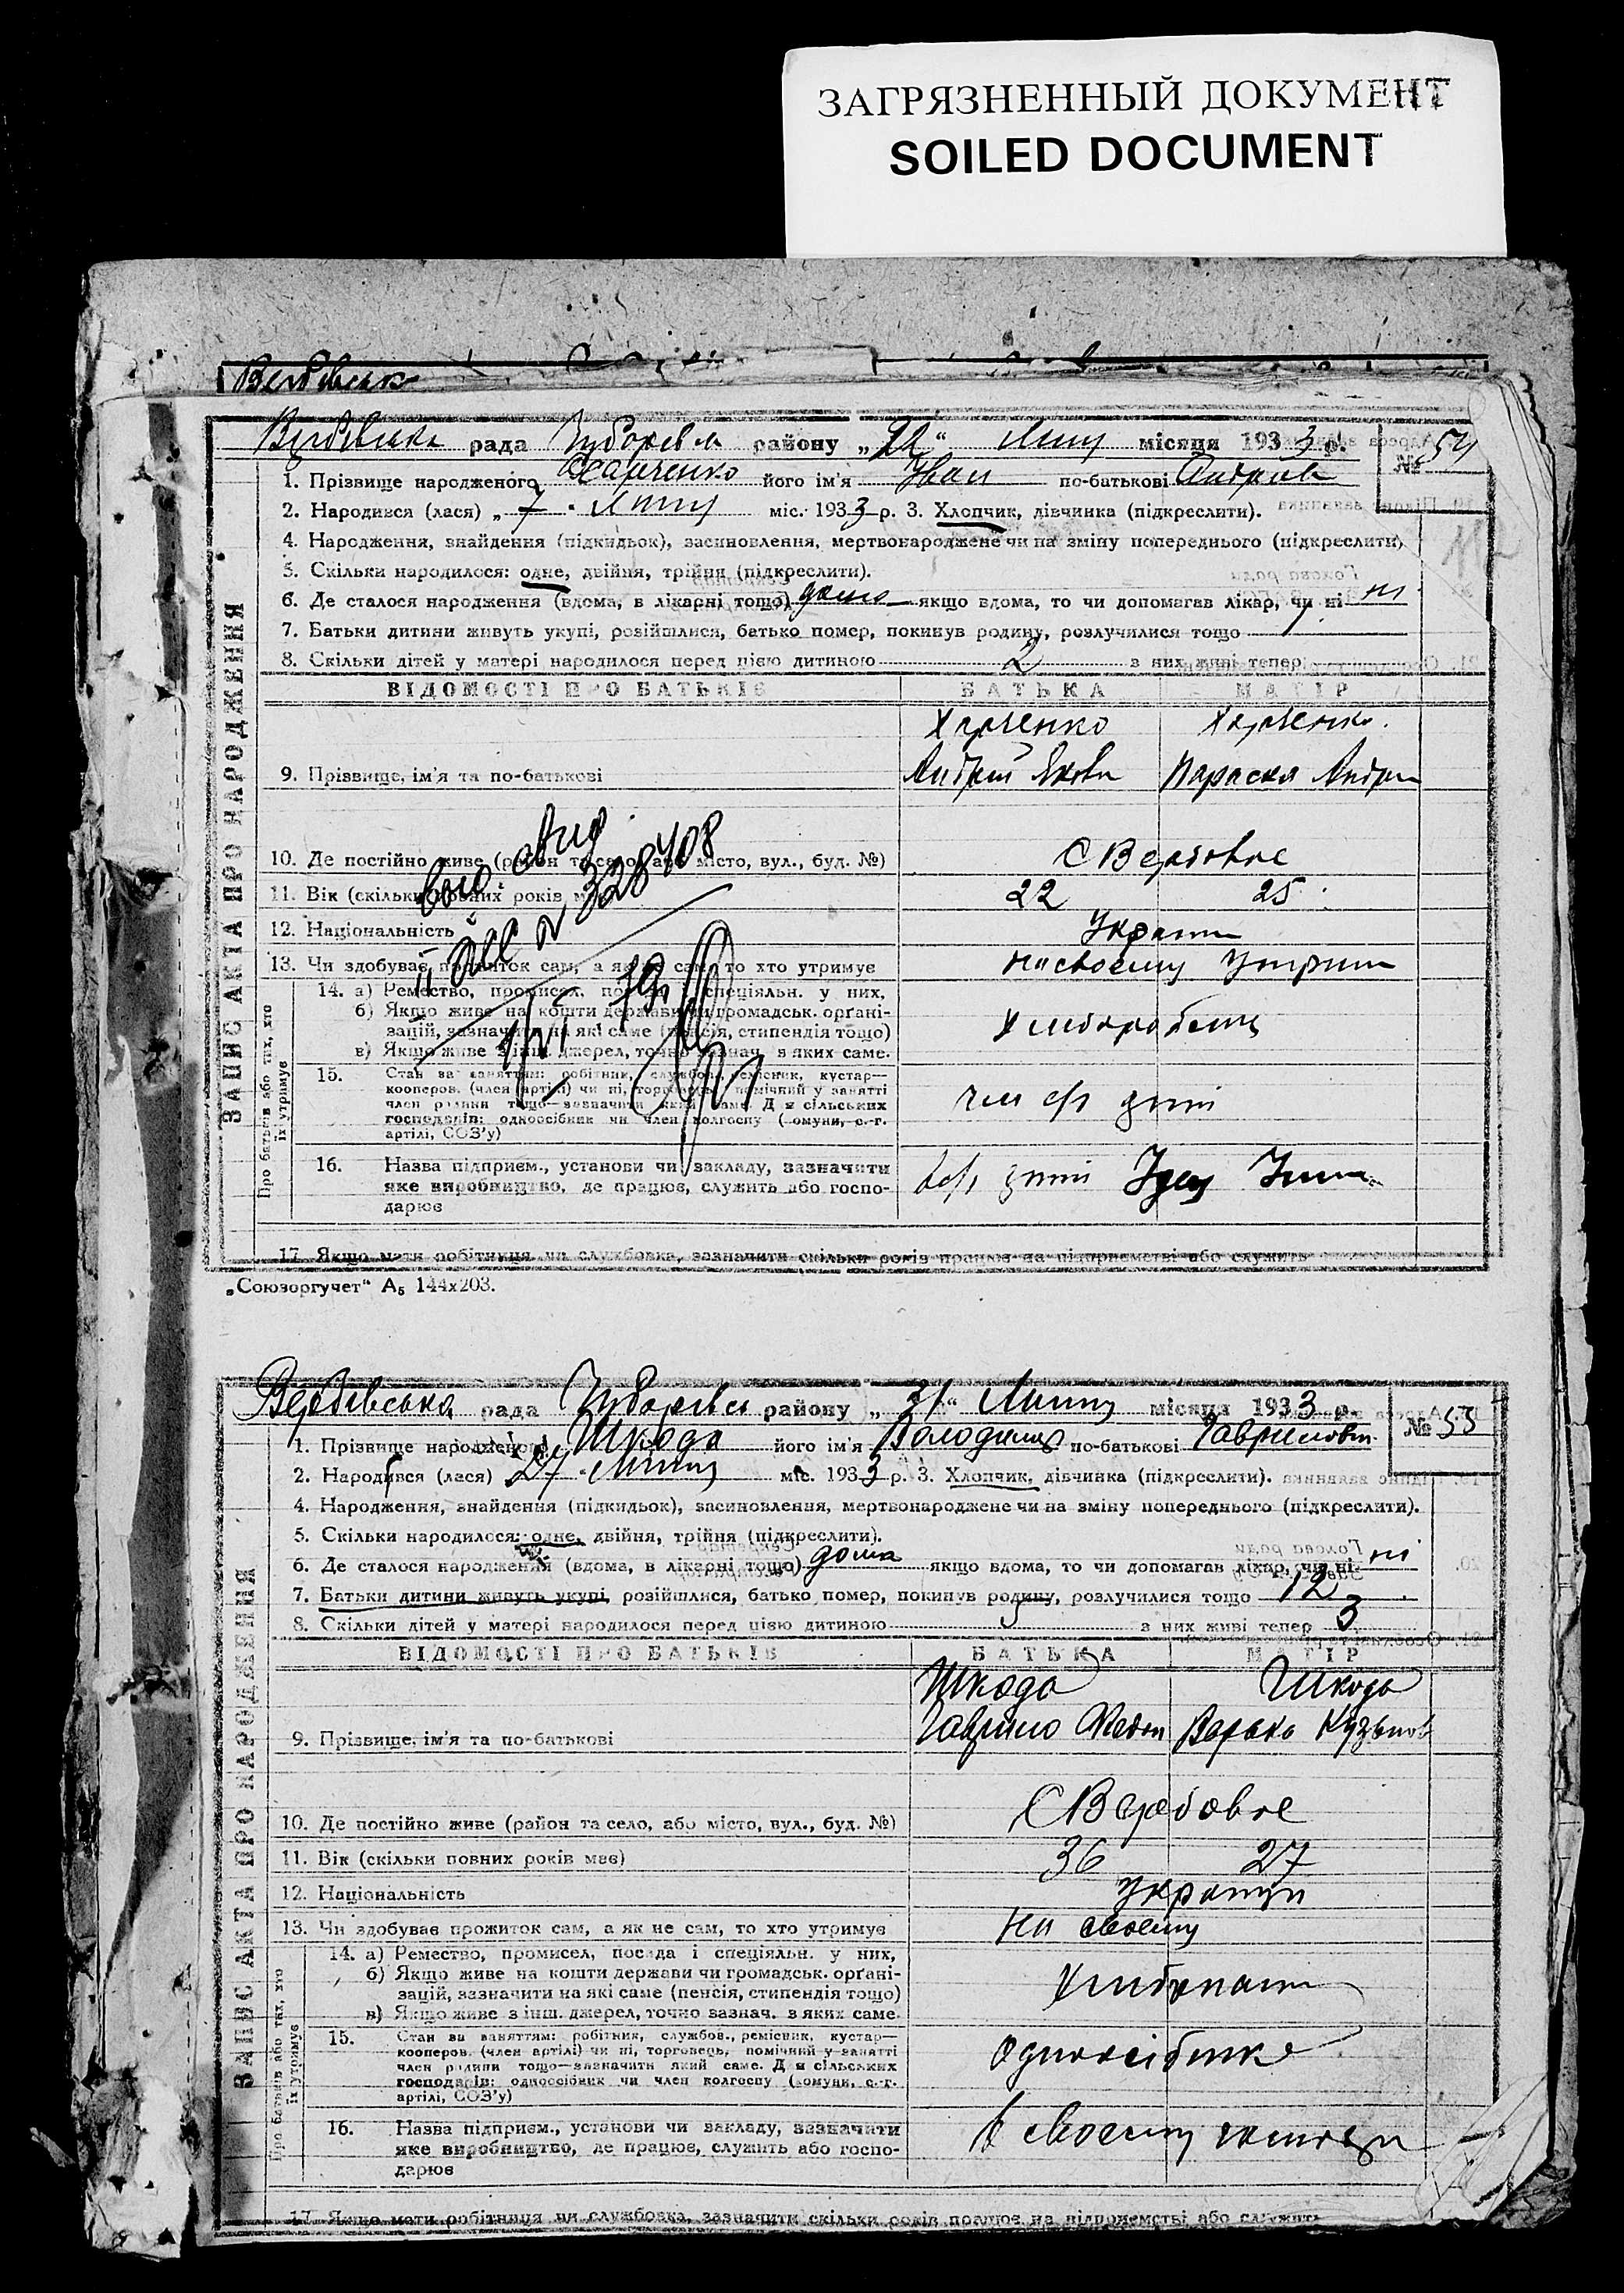 ЗАГРЯЗНЕННЫЙ ДОКУМЕНТ
SOILED DOCUMENT
Вербівська рада району „22“ місяця 1933 р. № 54
1. Прізвище народженого Харченко його ім'я Іван по-батькові Андріїв
2. Народився (лася) „7 міс. 1933 р. 3. Хлопчик, дівчинка (підкреслити).
4. Народження, знайдення (підкидьок), засиновлення, мертвонароджене чи на зміну попереднього (підкреслити)
5. Скільки народилося: одне, двійня, трійня (підкреслити).
6. Де сталося народження (вдома, в лікарні тощо) дома якщо вдома, то чи допомагав лікар, чи ні ні
7. Батьки дитини живуть укупі, розійшлися, батько помер, покинув родину, розлучилися тощо
8. Скільки дітей у матері народилося перед цією дитиною 2 з них живі тепер
ВІДОМОСТІ ПРО БАТЬКІВ БАТЬКА МАТІР
Харченко Харченко
9. Прізвище, ім'я та по-батькові Андрій Яков Параска Андри
10. Де постійно живе (район та село, або місто, вул., буд. №) С Вербове
11. Вік (скільки повних років має) 22 25
12. Національність
13. Чи здобуває прожиток сам, а як не сам, то хто утримує на своєму
14. а) Ремество, промисел, посада і спеціяльн. у них,
б) Якщо живе на кошти держави чи громадськ. орґані-
зацій, зазначити на які саме (пенсія, стипендія тощо)
в) Якщо живе з інш. джерел, точно зазнач. в яких саме.
15. Стан за заняттям: робітник, службов., ремісник, кустар—
кооперов. (член артілі) чи ні, торговець, помічний у занятті
член родини тощо—зазначити який саме. Для сільських
господарів: одноосібник чи член колгоспу (комуни, с.-г.
артілі, СОЗ'у)
16. Назва підприєм., установи чи закладу, зазначити
яке виробництво, де працює, служить або госпо-
дарює
17. Якщо мати робітниця чи службовка, зазначити скільки років працює на підприємстві або служить
ЗАПИС АКТА ПРО НАРОДЖЕННЯ
Про батьків або тих, хто їх утримує
328408
„Союзоргучет“ А₅ 144х203.
Вербівська рада району „31“ місяця 1933 р. № 53
1. Прізвище народженого Шкода його ім'я Володимир по-батькові Гаврилович
2. Народився (лася) 27 міс. 1933 р. 3. Хлопчик, дівчинка (підкреслити).
4. Народження, знайдення (підкидьок), засиновлення, мертвонароджене чи на зміну попереднього (підкреслити).
5. Скільки народилося: одне, двійня, трійня (підкреслити).
6. Де сталося народження (вдома, в лікарні тощо) дома якщо вдома, то чи допомагав лікар, чи ні ні
7. Батьки дитини живуть укупі, розійшлися, батько помер, покинув родину, розлучилися тощо 12
8. Скільки дітей у матері народилося перед цією дитиною 5 з них живі тепер 3
ВІДОМОСТІ ПРО БАТЬКІВ БАТЬКА МАТІР
Шкода Шкода
9. Прізвище, ім'я та по-батькові Гаврило Варька Кузьмов
10. Де постійно живе (район та село, або місто, вул., буд. №) С Вербове
11. Вік (скільки повних років має) 36 27
12. Національність
13. Чи здобуває прожиток сам, а як не сам, то хто утримує на своєму
14. а) Ремество, промисел, посада і спеціяльн. у них,
б) Якщо живе на кошти держави чи громадськ. орґані-
зацій, зазначити на які саме (пенсія, стипендія тощо)
в) Якщо живе з інш. джерел, точно зазнач. в яких саме.
15. Стан за заняттям: робітник, службов., ремісник, кустар—
кооперов. (член артілі) чи ні, торговець, помічний у занятті
член родини тощо—зазначити який саме. Для сільських
господарів: одноосібник чи член колгоспу (комуни, с.-г.
артілі, СОЗ'у)
16. Назва підприєм., установи чи закладу, зазначити
яке виробництво, де працює, служить або госпо-
дарює
17. Якщо мати робітниця чи службовка, зазначити скільки років працює на підприємстві або служить
ЗАПИС АКТА ПРО НАРОДЖЕННЯ
Про батьків або тих, хто їх утримує